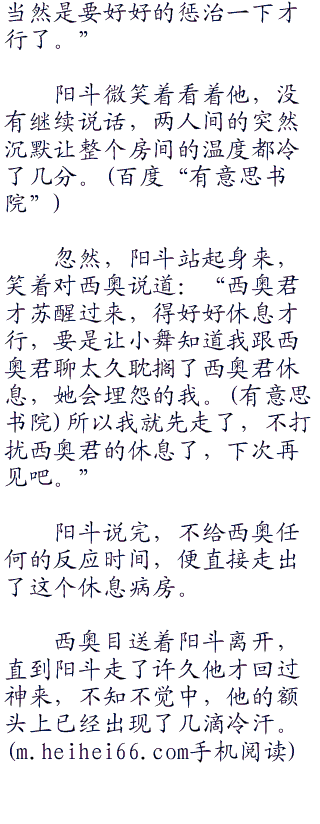 当然是要好好的惩治一下才
行了。”
阳斗微笑着看着他，没
有继续说话，两人间的突然
沉默让整个房间的温度都冷
了几分。(百度“有意思书
院”)
忽然，阳斗站起身来，
笑着对西奥说道：“西奥君
才苏醒过来，得好好休息才
行，要是让小舞知道我跟西
奥君聊太久耽搁了西奥君休
息，她会埋怨的我。(有意思
书院)所以我就先走了，不打
扰西奥君的休息了，下次再
见吧。”
阳斗说完，不给西奥任
何的反应时间，便直接走出
了这个休息病房。
西奥目送着阳斗离开，
直到阳斗走了许久他才回过
神来，不知不觉中，他的额
头上已经出现了几滴冷汗。
(m.heihei66.com手机阅读)